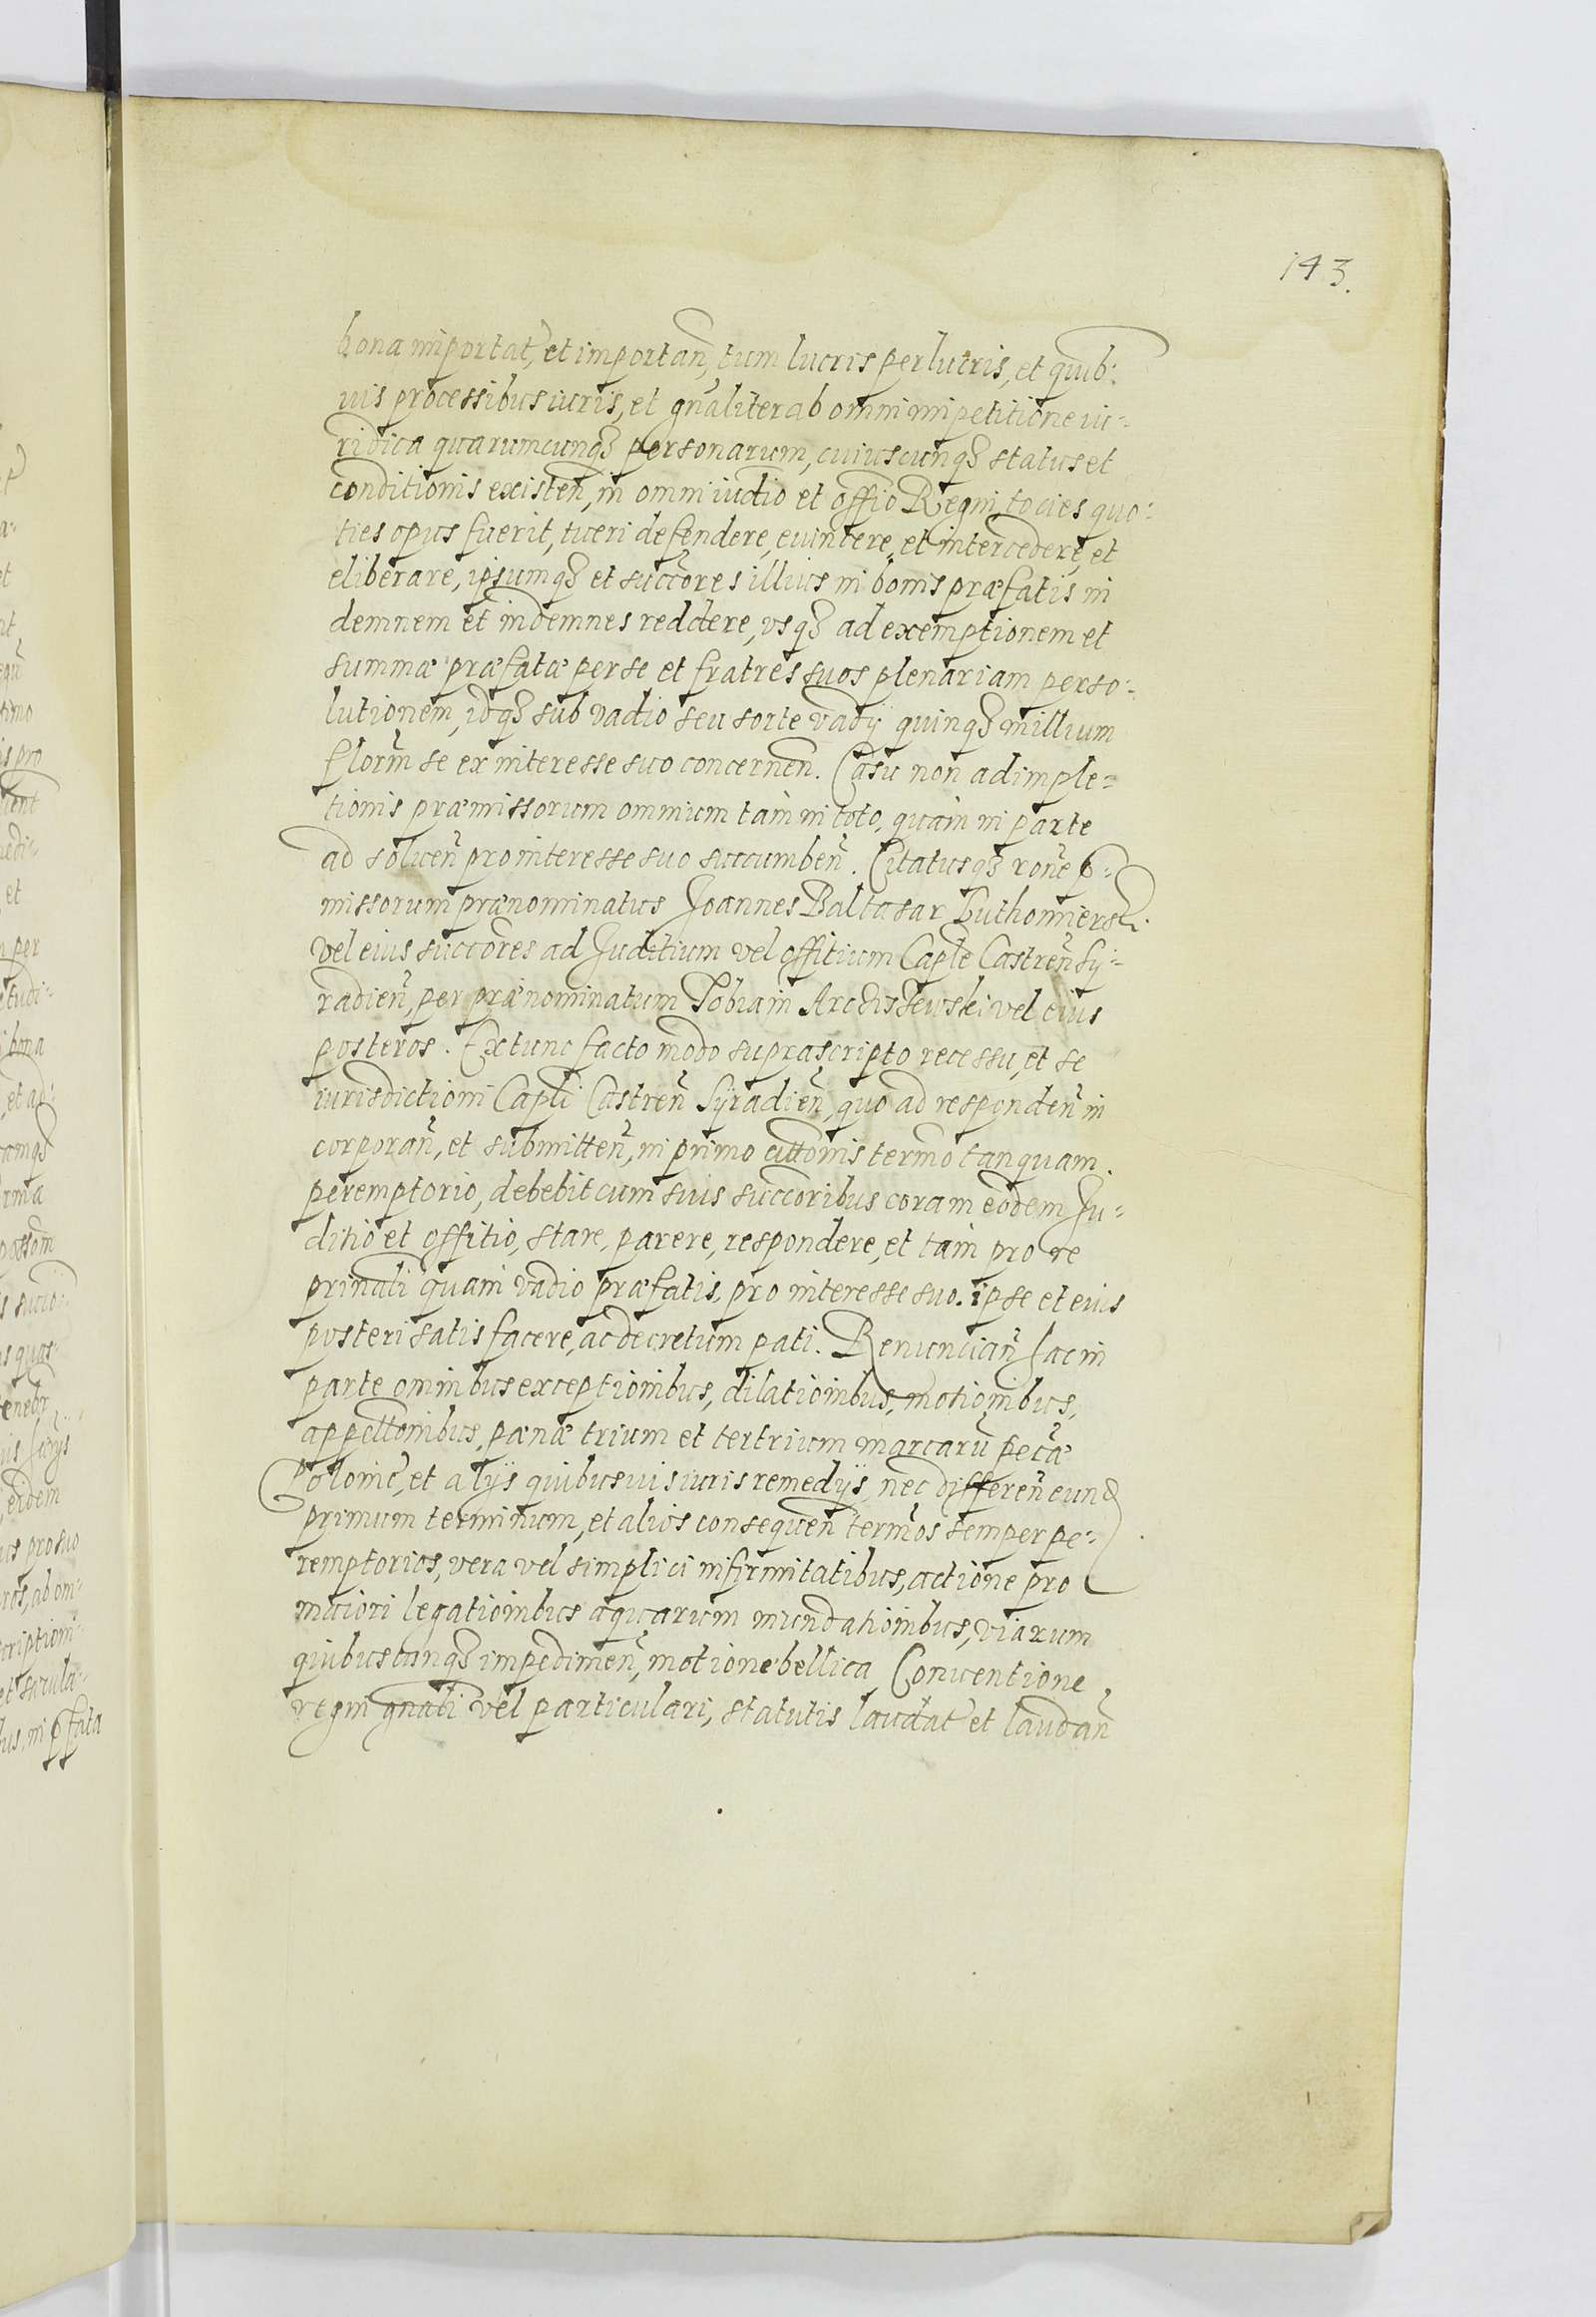 143.
bona importat, et importan, tum lucris perlucris, et quib:
uis processibus iuris, et gnaliter ab omni impetitione iu-
ridica quarumcunq3 personarum, cuiuscunq3 status et
conditionis existen, in omni iudtio et offio Regni, tocies quo-
ties opus fuerit, tueri defendere, euincere, et intercedere, et
eliberare, ipsumq3 et succores illius in bonis præfatis in
demnem et indemnes reddere, vsq3 ad exemptionem et
summæ præfatæ per se et fratres suos plenariam perso-
lutionem, idq3 sub vadio seu sorte vadÿ quinq3 millium
florm se ex interesse suo concernen. Casu non adimple-
tionis præmissorum omnium tam in toto, quam in parte
ad soluen pro interesse suo succumben. Citatusq3 rone p-
missorum prænominatus Joannes Baltasar
vel eius succores ad Juditium vel offitium Caple Castren Sÿ-
radien, per prænominatum Tobiam vel eius
posteros. Extunc facto modo suprascripto recessu, et se
iurisdictioni Capli Castren Sÿradien, quo ad responden in
corporan, et submitten, in primo cittonis termo tanquam
peremptorio, debebit cum suis succoribus coram eodem Ju-
ditio et offitio, stare, parere, respondere, et tam pro re
prinali quam vadio præfatis, pro interesse suo. ipse et eius
posteri satisfacere, ac decretum pati. Renuncian hac in
parte omnibus exceptionibus, dilationibus, motionibus,
appellonibus, pænæ trium et tertrium marcaru pecæ
Polonic, et alÿs quibusuis iuris remedÿs, nec differen eund
primum terminum, et alios consequen termos semper pe-
remptorios, vera vel simplici infirmitatibus, actione pro
maiori legationibus aquarum inundationibus, viarum
quibuscunq3 impedimen, motione bellica Conuentione
regni gnali vel particulari, statutis laudat et laudan